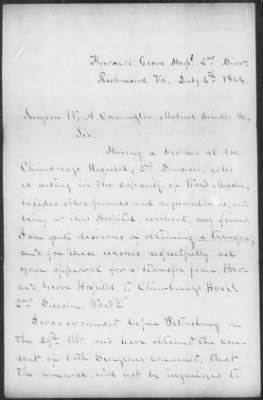 Howard's Grove Hosp'l 2nd Divis.
Richmond Va. July 4th 1864.
Surgeon W. A. Carrington, Medical Director &c,
Sir.
Having a brother at the
Chimborazo Hospital, 2nd Division, who
is acting in the capacity of Ward Master,
besides other friends and acquaintances, and
being at this Hospital, without any friend,
I am quite desirous of obtaining a transfer,
and for these reasons respectfully ask
your approval for a transfer from How-
ard's Grove Hospital to Chimborazo Hosp'l
2nd Division. Ward E.
I was wounded before Petersburg on
the 29th Ult. and have obtained the con-
sent of both Surgeons concerned, that
the removal will not be injurious to